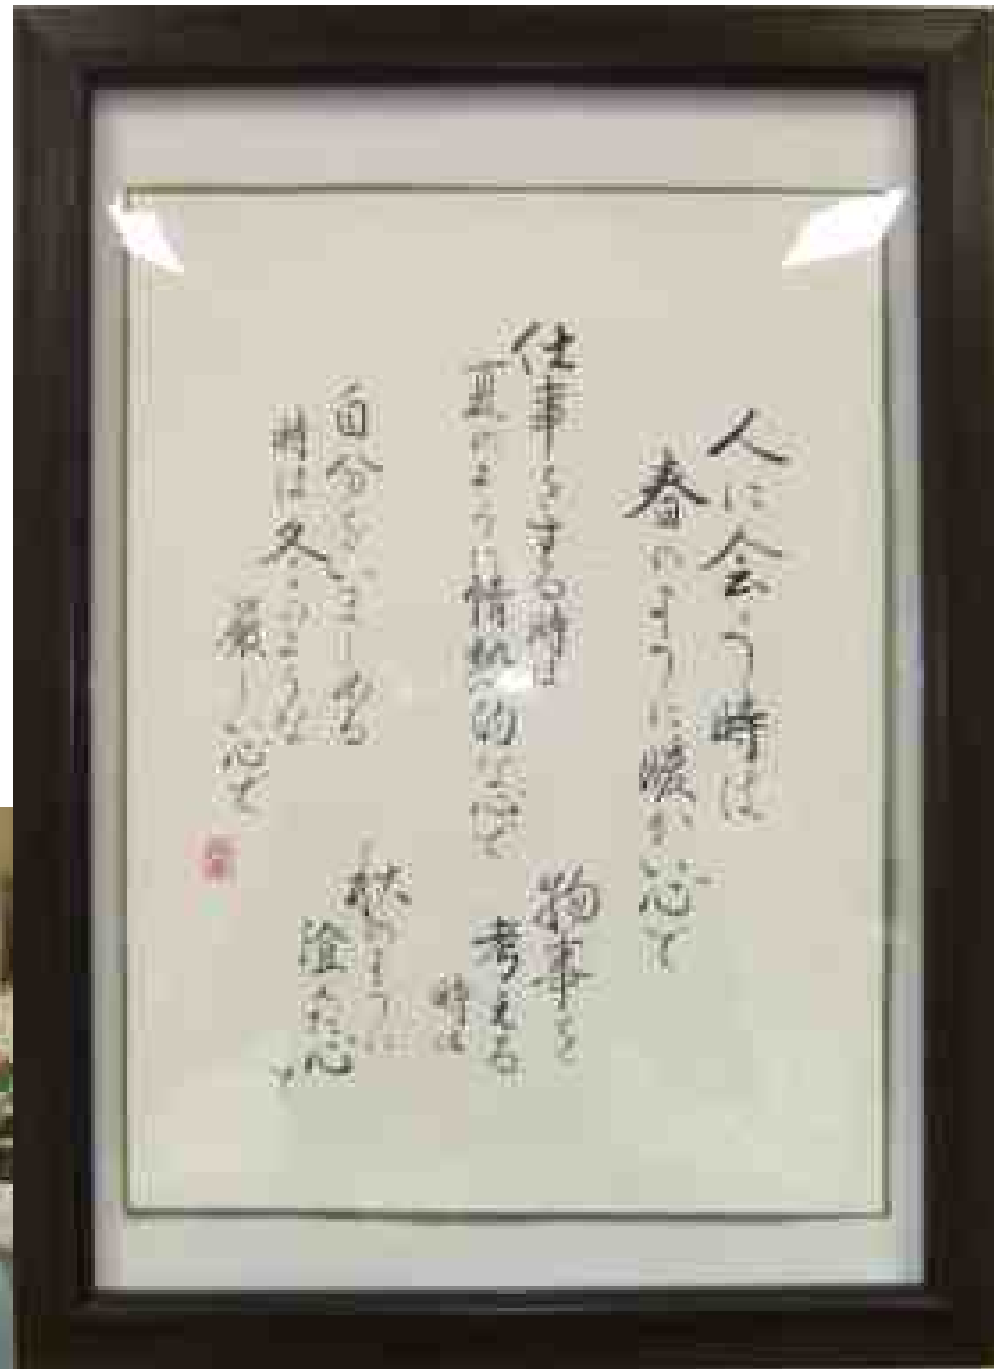 人に会う時は
春のように暖かい心で
仕事をする時は
夏のように情熱的な心で
物事を
考える
時は
秋のように
澄んだ心
で
自分を
時は冬のような
厳しい心で